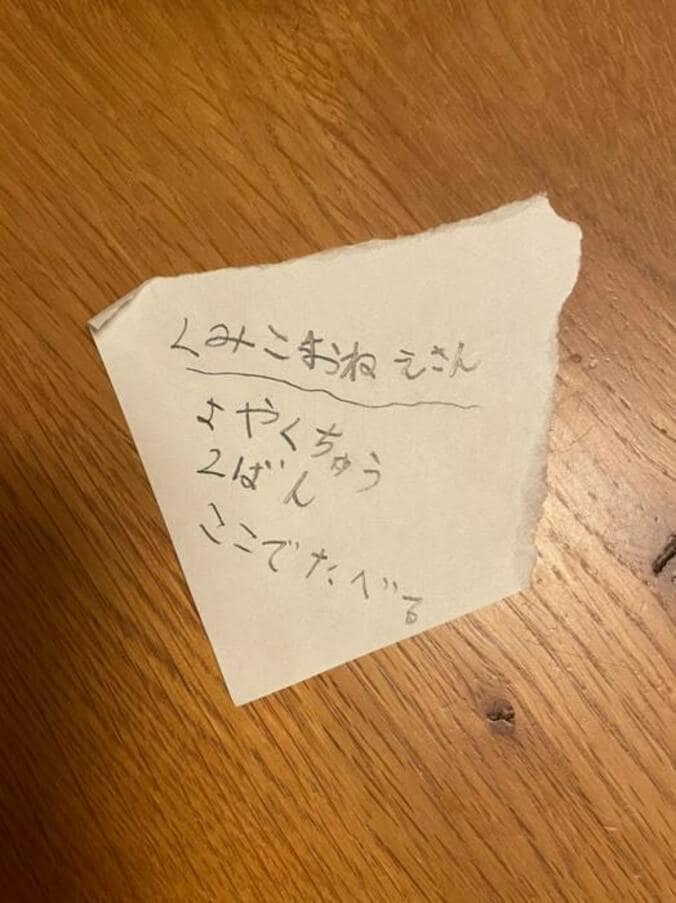 くみこおねえさん
よやくちゅう
2ばん
ここでたべる